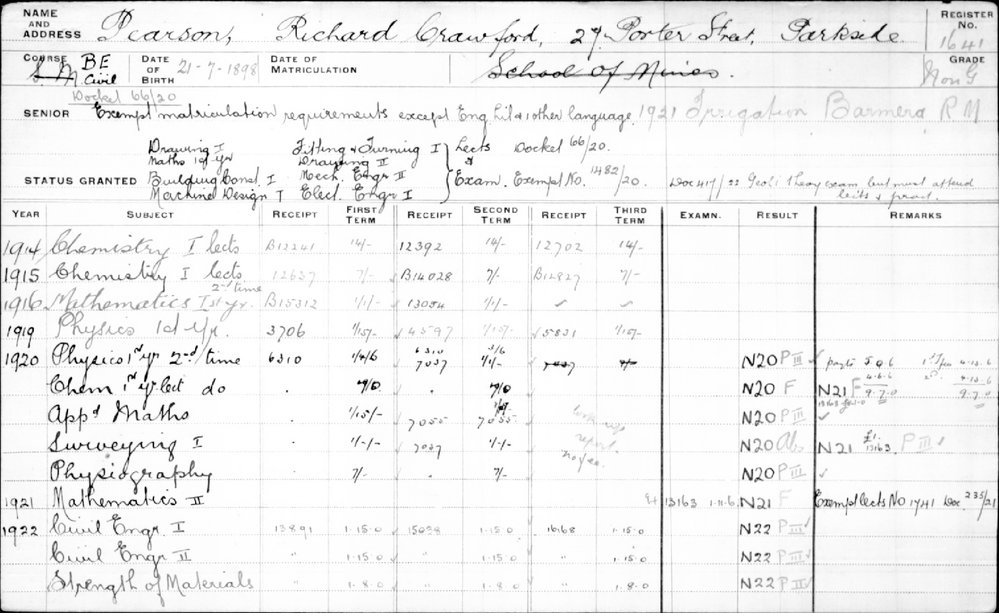 NAME AND ADDRESS Pearson, Richard Crawford, 27 Porter Street, Parkside. REGISTER No. 1641
COURSE S. M. BE Civil DATE OF BIRTH 21-7-1898 DATE OF MATRICULATION School of Mines. GRADE Non G
Docket 66/20
SENIOR Exempt matriculation requirements except Eng Lit & 1 other language. 1921 Irrigation Barmera R M
Drawing I Fitting & Turning I Lects Docket 66/20.
Maths 1st yr Drawing II &
STATUS GRANTED Building Const. I Mech. Engr II Exam. Exempt No. 1482/20. Doc 417/22 Geol I theory exam but must attend
Machine Design I Elect. Engr I lects & pract.
YEAR SUBJECT RECEIPT FIRST TERM RECEIPT SECOND TERM RECEIPT THIRD TERM EXAMN. RESULT REMARKS
1914 Chemistry I lects B12241 14/- 12392 14/- 12702 14/-
1915 Chemistry I lects 2nd time 12637 7/- B14028 7/- B12827 7/-
1916 Mathematics 1st yr. B15312 1/1/- 13054 1/1/- ✓ ✓
1919 Physics 1st yr. 3706 1/15/- 4597 1/15/- 5831 1/15/-
1920 Physics 1st yr 2nd/time 6310 6310 7037 1/1/- 7037 7/- N20 P III ✓ 1st 4.13.6
Chem 1st yr. lect do . 7/0 7/0 N20 F N21 F 4.6.6 9.7.0 2nd 4.13.6 9.7.0
Appd Maths . 1/15/- 7055 7055 N20 P III ✓
Surveying I . 1/1/- 7037 1/1/- N20 Abs N21 £1. 13163. P III ✓
Physiography . 7/- 7/- N20 P III ✓
1921 Mathematics II 13163 1.11.6 N21 F Exempt lects No 1741 Doc. 235/21
1922 Civil Engr. I 13891 1.15.0 15038 1.15.0 16168 1.15.0 N22 P III ✓
Civil Engr II " 1.15.0 " 1.15.0 " 1.15.0 N22 P III ✓
Strength of Materials " 1.8.0 " 1.8.0 " 1.8.0 N22 P II ✓